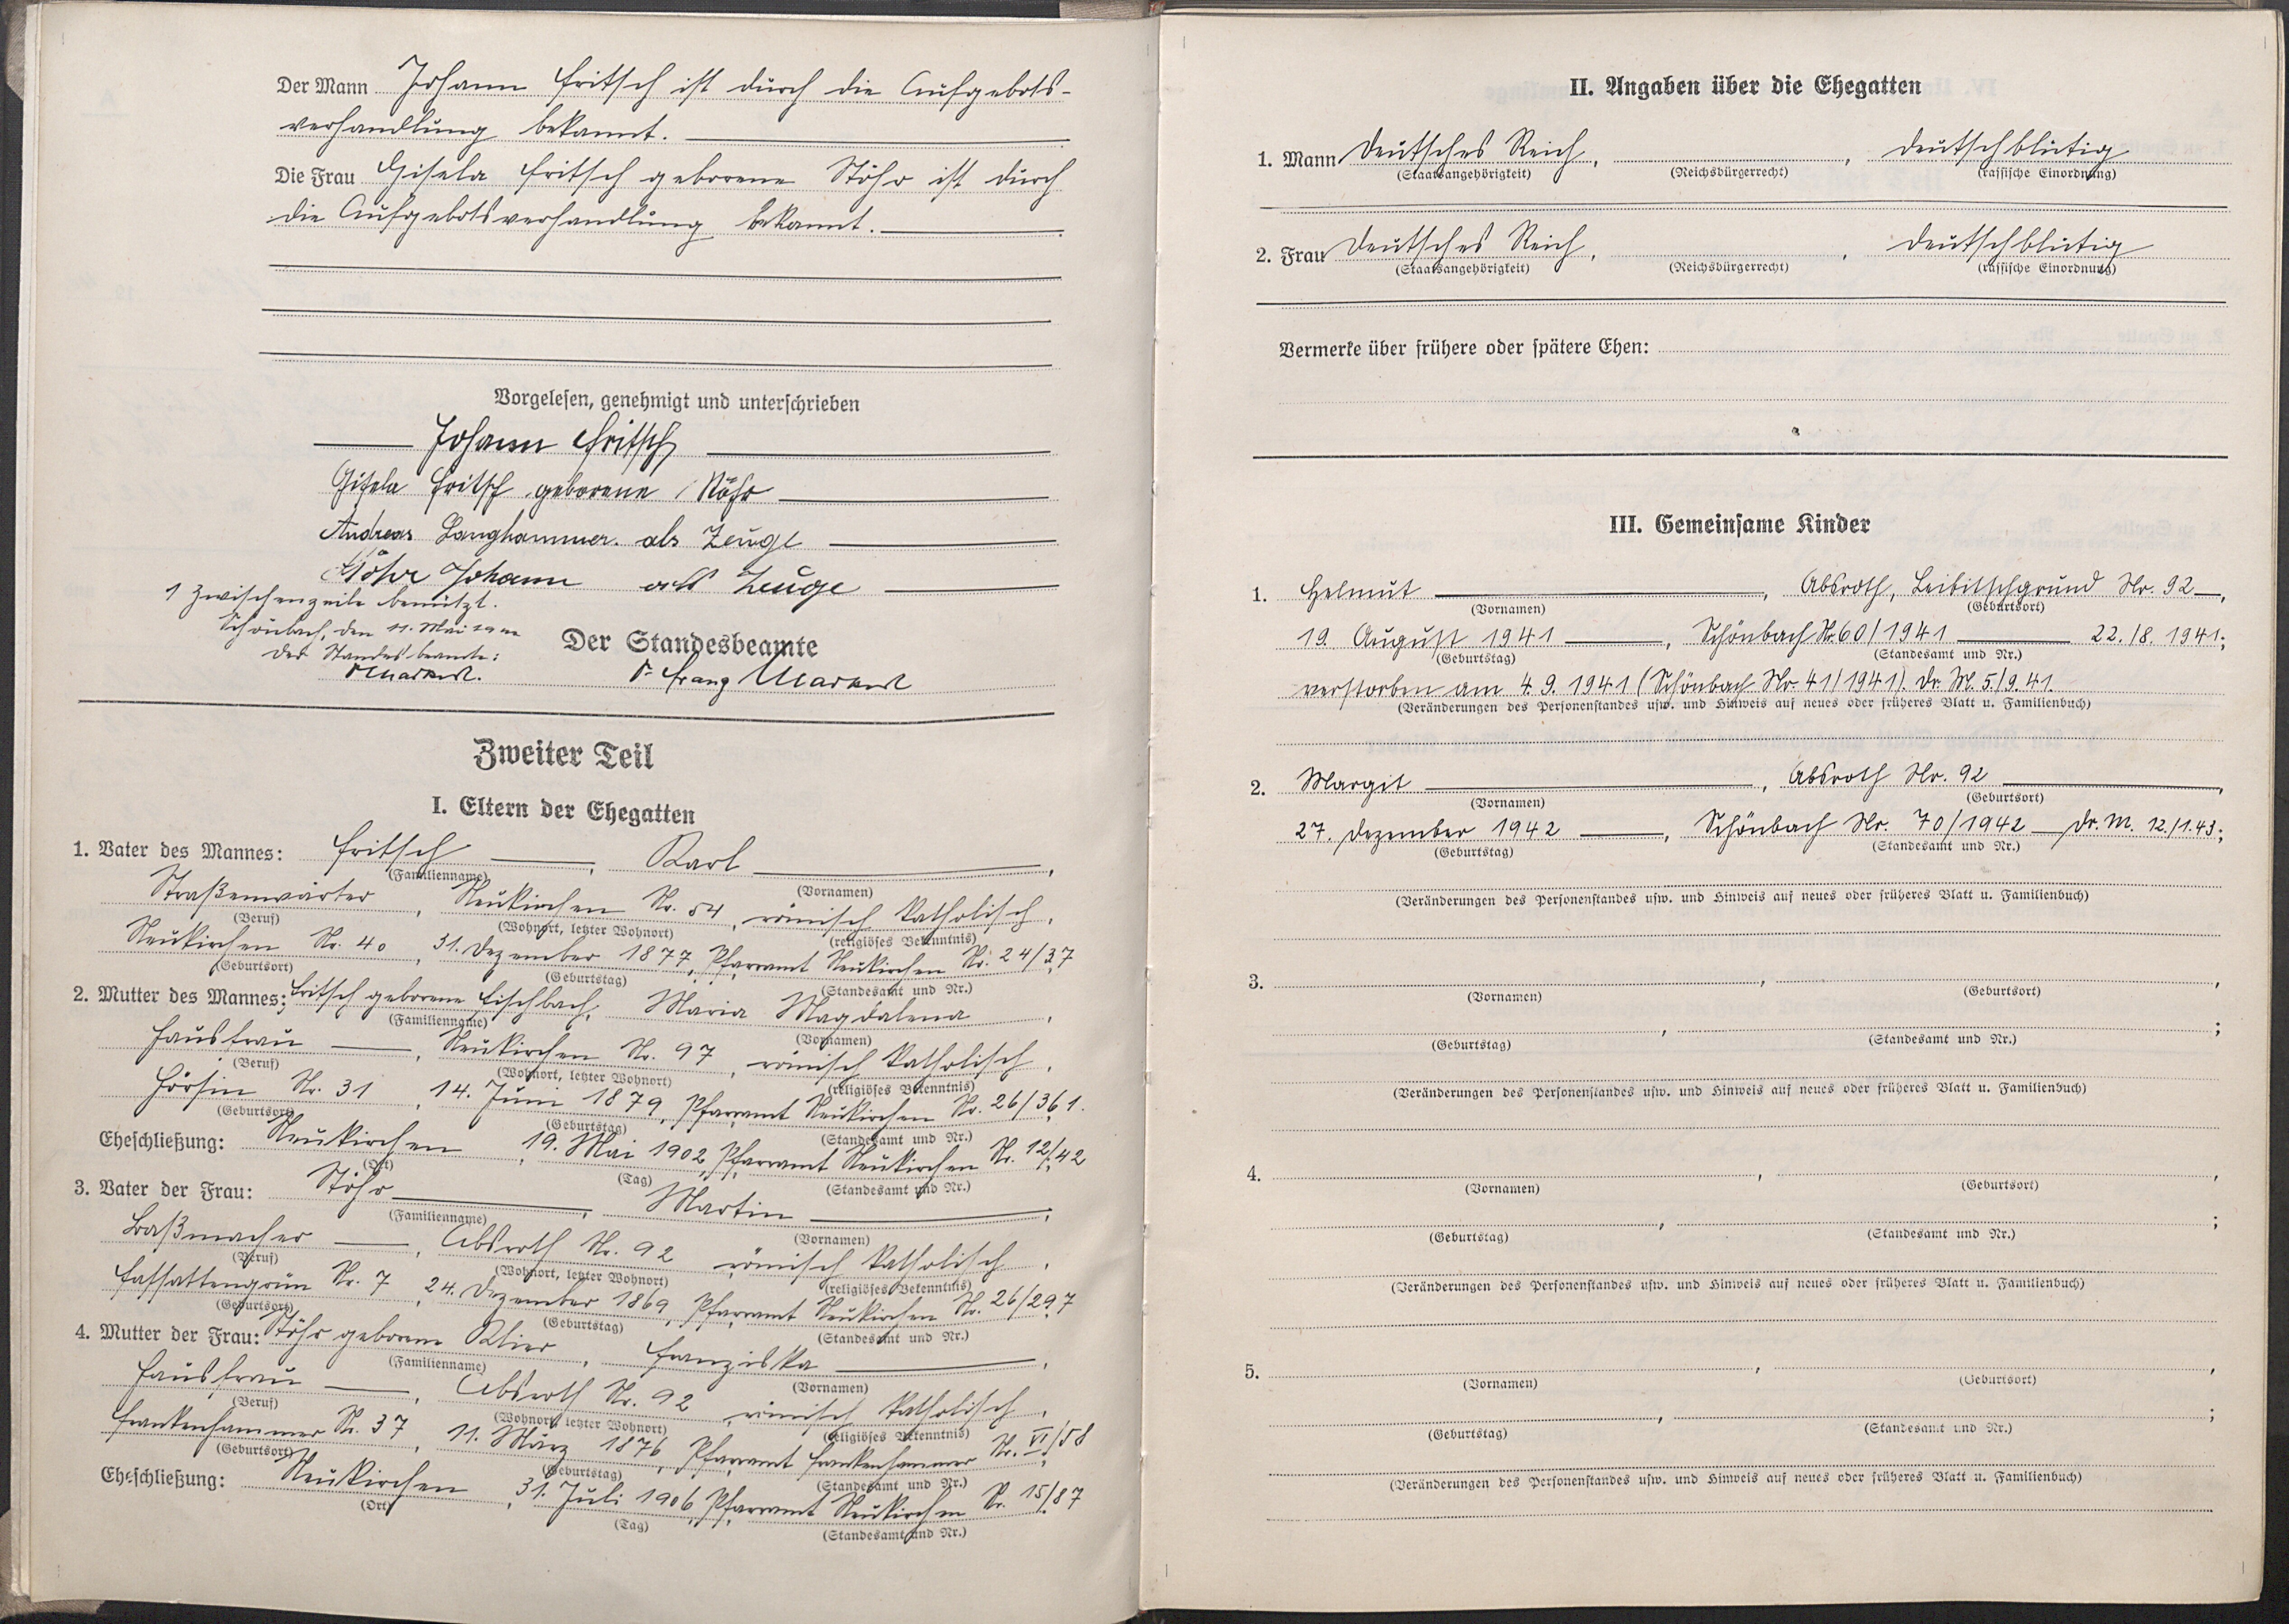 Der Mann Johann Fritsch ist durch die Aufgebots-
verhandlung bekannt.
Die Frau Gisela Fritsch geborene Stöhr ist durch
die Aufgebotsverhandlung bekannt.
Vorgelesen, genehmigt und unterschrieben
Johann Fritsch
Gisela Fritsch geborene Stöhr
Andreas Langhammer. als Zeuge
Stöhr Johann als Zeuge
1 Zwischenzeile benützt.
Schönbach, den 11. Mai
Der Standesbeamte:
Markert.
Der Standesbeamte
Dr Franz Markert
Zweiter Teil
I. Eltern der Ehegatten
1. Vater des Mannes: Fritsch, Karl,
(Familienname) (Vornamen)
Straßenwärter, Neukirchen Nr. 54, römisch katholisch,
(Beruf) (Wohnort, letzter Wohnort) (religiöses Bekenntnis)
Neukirchen Nr. 40, 31. Dezember 1877, Pfarramt Neukirchen Nr. 24/37
(Geburtsort) (Geburtstag) (Standesamt und Nr.)
2. Mutter des Mannes: Fritsch geborene Fischbach, Maria Magdalena,
(Familienname) (Vornamen)
Hausfrau, Neukirchen Nr. 97, römisch katholisch,
(Beruf) (Wohnort, letzter Wohnort) (religiöses Bekenntnis)
Hörsin Nr. 31, 14. Juni 1879, Pfarramt Neukirchen Nr. 26/361.
(Geburtsort) (Geburtstag) (Standesamt und Nr.)
Eheschließung: Neukirchen, 19. Mai 1902, Pfarramt Neukirchen Nr. 12/42
(Ort) (Tag) (Standesamt und Nr.)
3. Vater der Frau: Stöhr, Martin,
(Familienname) (Vornamen)
Baßmacher, Absroth Nr. 92 römisch katholisch,
(Beruf) (Wohnort, letzter Wohnort) (religiöses Bekenntnis)
Fassattengrün Nr. 7, 24. Dezember 1869, Pfarramt Neukirchen Nr. 26/297
(Geburtsort) (Geburtstag) (Standesamt und Nr.)
4. Mutter der Frau: Stöhr geborene Klier, Franziska,
(Familienname) (Vornamen)
Hausfrau, Absroth Nr. 92, römisch katholisch,
(Beruf) (Wohnort, letzter Wohnort) (religiöses Bekenntnis)
Frankenhammer Nr. 37, 11. März 1876, Pfarramt Frankenhammer Nr. VI/58
(Geburtsort) (Geburtstag) (Standesamt und Nr.)
Eheschließung: Neukirchen, 31. Juli 1906, Pfarramt Neukirchen Nr. 15/87
(Ort) (Tag) (Standesamt und Nr.)
II. Angaben über die Ehegatten
1. Mann Deutsches Reich, , deutschblütig
(Staatsangehörigkeit) (Reichsbürgerrecht) (rassische Einordnung)
2. Frau Deutsches Reich, , deutschblütig
(Staatsangehörigkeit) (Reichsbürgerrecht) (rassische Einordnung)
Vermerke über frühere oder spätere Ehen:
III. Gemeinsame Kinder
1. Helmut, Absroth, Leibitschgrund Nr. 92,
(Vornamen) (Geburtsort)
19. August 1941, Schönbach Nr. 60/1941 22./8. 1941;
(Geburtstag) (Standesamt und Nr.)
verstorben am 4.9.1941 (Schönbach Nr. 41/1941). Dr. M. 5./9.41.
(Veränderungen des Personenstandes usw. und Hinweis auf neues oder früheres Blatt u. Familienbuch)
2. Margit, Absroth Nr. 92,
(Vornamen) (Geburtsort)
27. Dezember 1942, Schönbach Nr. 70/1942 Dr. M. 12./1.43;
(Geburtstag) (Standesamt und Nr.)
(Veränderungen des Personenstandes usw. und Hinweis auf neues oder früheres Blatt u. Familienbuch)
3. , ,
(Vornamen) (Geburtsort)
, ;
(Geburtstag) (Standesamt und Nr.)
(Veränderungen des Personenstandes usw. und Hinweis auf neues oder früheres Blatt u. Familienbuch)
4. , ,
(Vornamen) (Geburtsort)
, ;
(Geburtstag) (Standesamt und Nr.)
(Veränderungen des Personenstandes usw. und Hinweis auf neues oder früheres Blatt u. Familienbuch)
5. , ,
(Vornamen) (Geburtsort)
, ;
(Geburtstag) (Standesamt und Nr.)
(Veränderungen des Personenstandes usw. und Hinweis auf neues oder früheres Blatt u. Familienbuch)